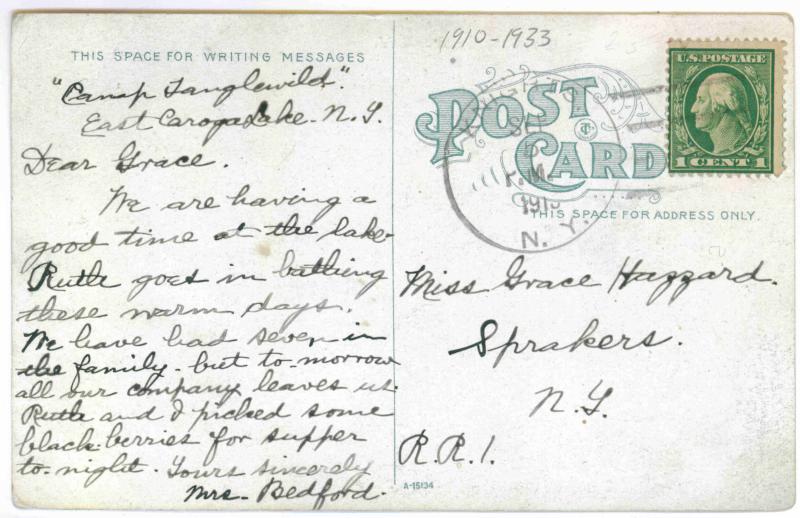 1910-1933
THIS SPACE FOR WRITING MESSAGES
"Camp Tanglewild".
East Caroga Lake. N.Y.
Dear Grace.
We are having a
good time at the lake.
Ruth goes in bathing
these warm days.
We have had seven in
the family. but to-morrow
all our company leaves us.
Ruth and I picked some
black-berries for supper
to-night. Yours sincerely
Mrs. Bedford.
POST
CARD
U.S. POSTAGE
1 CENT 1
P.M.
191
N. Y.
THIS SPACE FOR ADDRESS ONLY.
Miss Grace Hazzard.
Sprakers.
N.Y.
R.R.1.
A-15134